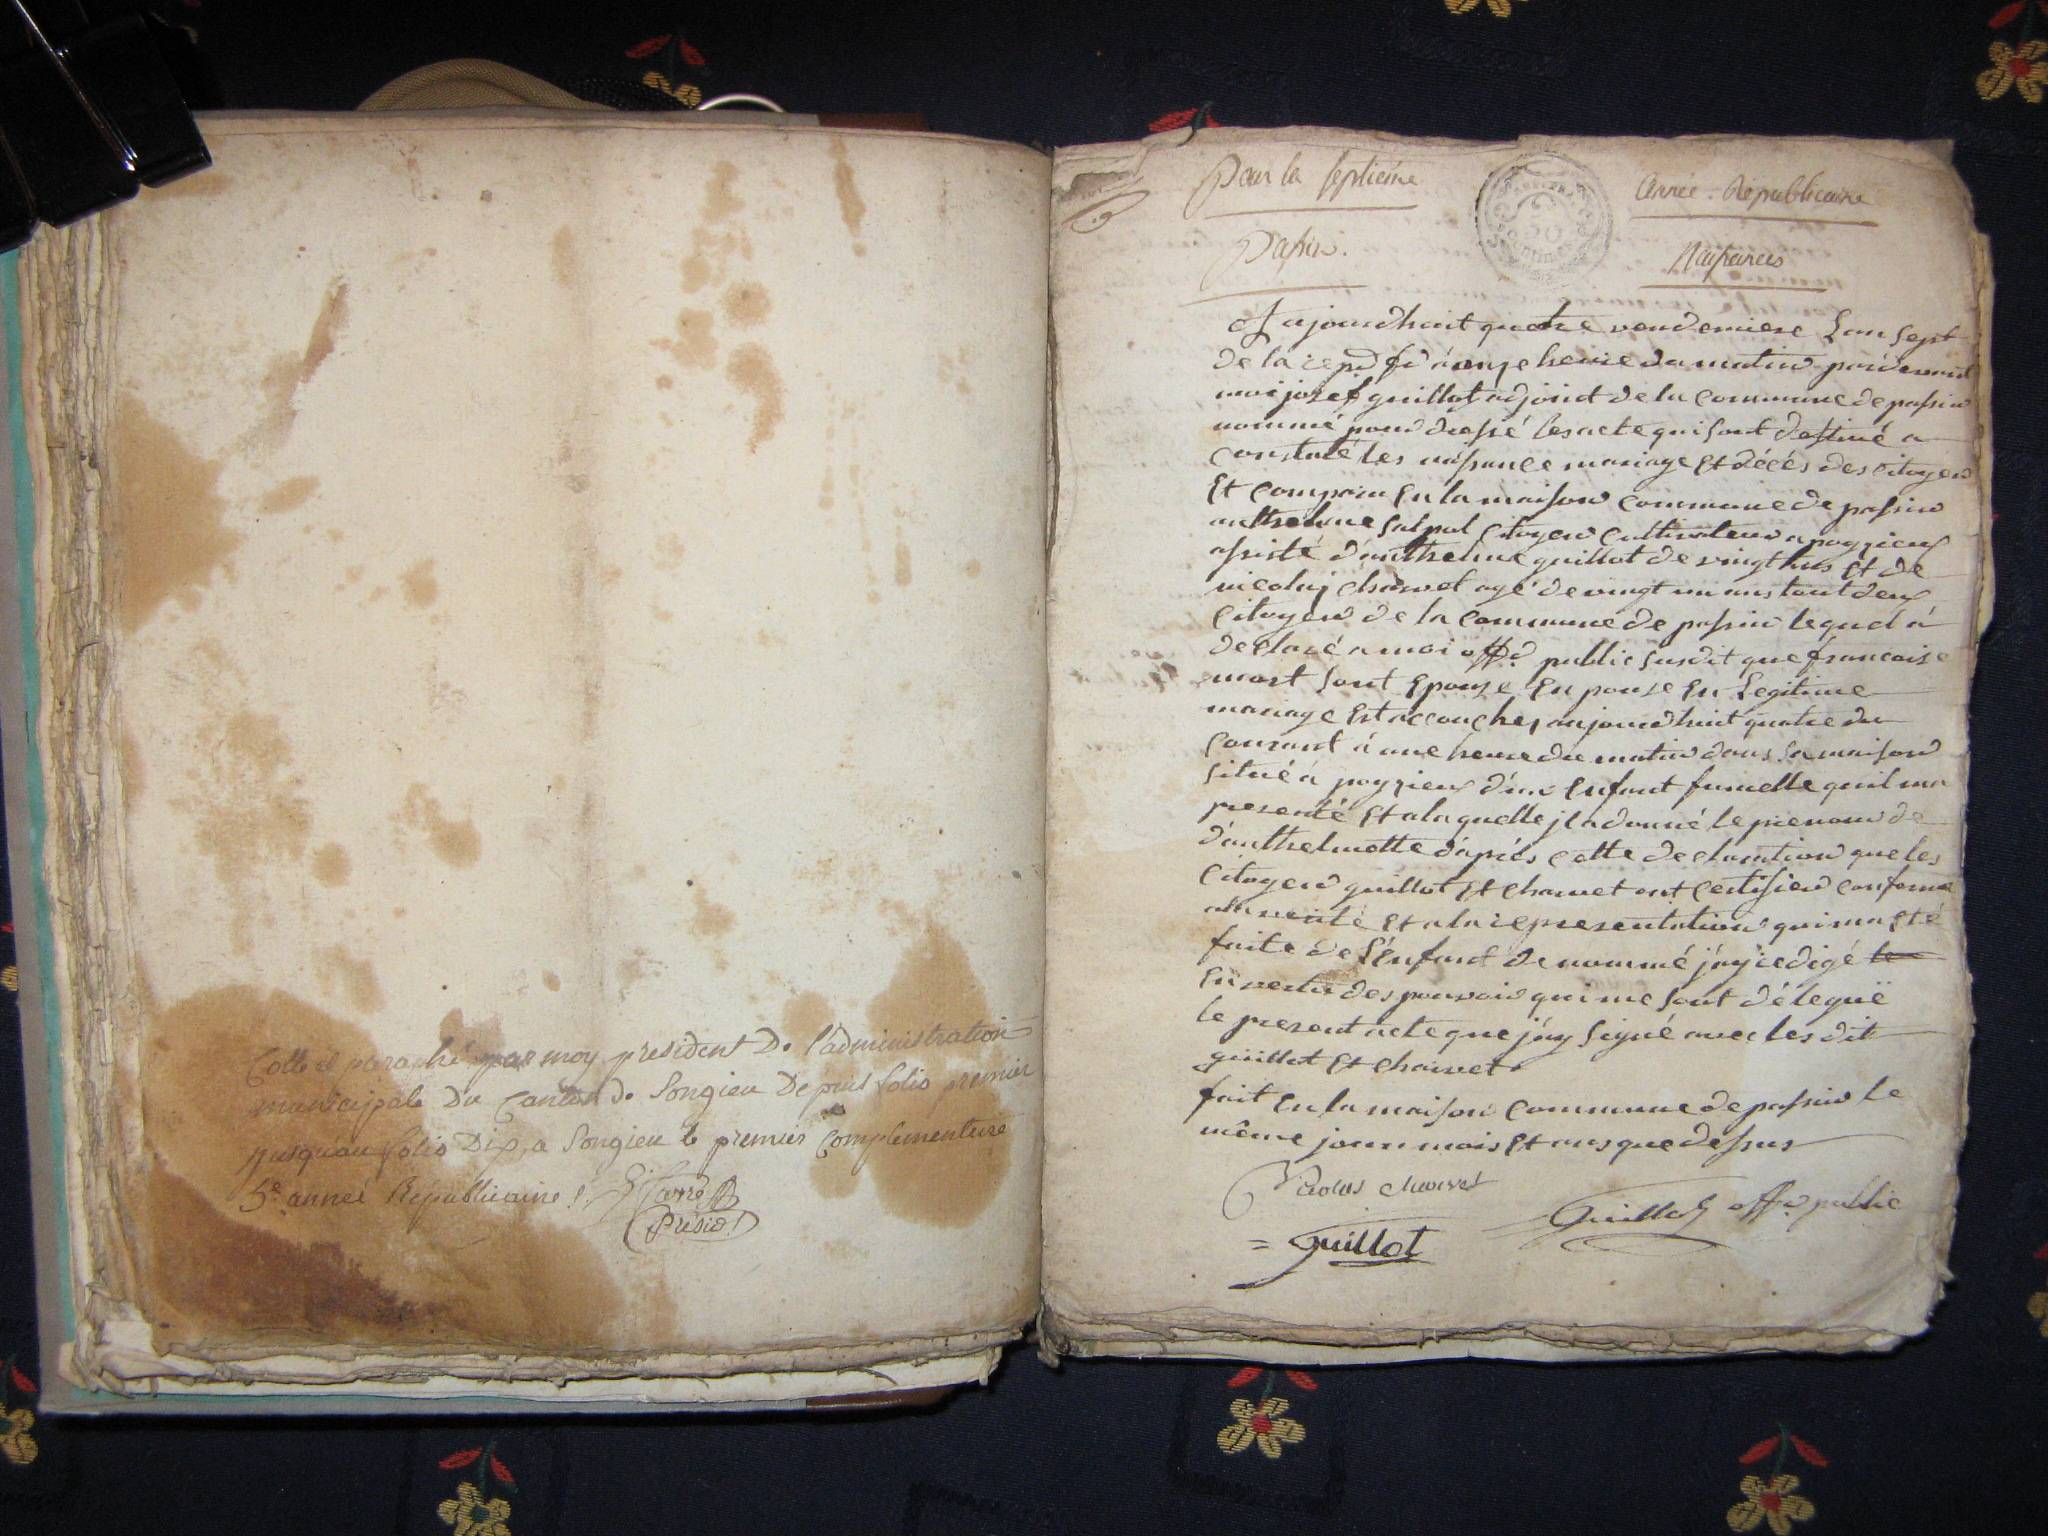 Cotté et paraphé par moy président De l'administration
municipale Du Canton de Songieu Depuis folio premier
jusqu'au folio Dix, a Songieu le premier complementaire
5e anneé Republicaine
Présid
Pour la septieme
année Republicaine
Passin.
Naissances
Aujourdhuit quatre vendemiere L'an sept
de la repu fr à onze heure du matin pardevant
moi josef guillot adjoint de la commune de passin
nommé pour dressé les acte qui sont destiné a
constaté les naissance mariage Et décés des citoyen
Et comparu En la maison commune de passin
anthelme citoyen cultivateur a poyzieux
assisté d'anthelme guillot de vingt ans Et de
nicolas charvet agé de vingt un ans tout deux
citoyen de la commune de passin lequel à
declaré a moi offr public susdit que francoise
mort sont Epouze En Legitime
mariage Est accouchez aujourdhuit quatre du
courant à une heure du matin dans sa maison
situé à poyzieux d'un Enfant fumelle quil ma
presenté Et a laquelle jl a donné le prenom de
d'anthelmette d'aprés cette declaration que les
citoyen guillot Et charvet ont certifieu conforme
a la verité Et a la representation qui ma Eté
faite de L'Enfant denommé j'ay redigé le
En vertu des pouvoir qui me sont délegué
le present acte que j'ay signé avec les dit
guillot Et charvet
fait En la maison commune de passin le
même jour mois Et ans que dessus
Nicolas charvet
Guillot offr public
= Guillot